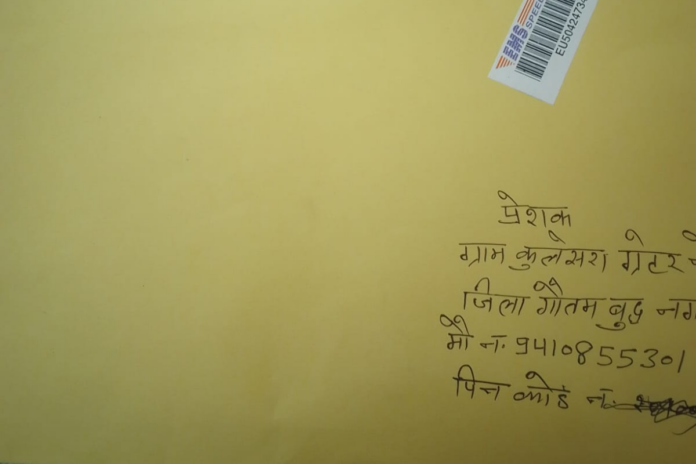 EMS SPEED
EU5042473
प्रेशक
ग्राम कुलेसरा ग्रेटर
जिला गौतम बुद्ध नग
मो नं. 9410855301
पिन कोड नं.